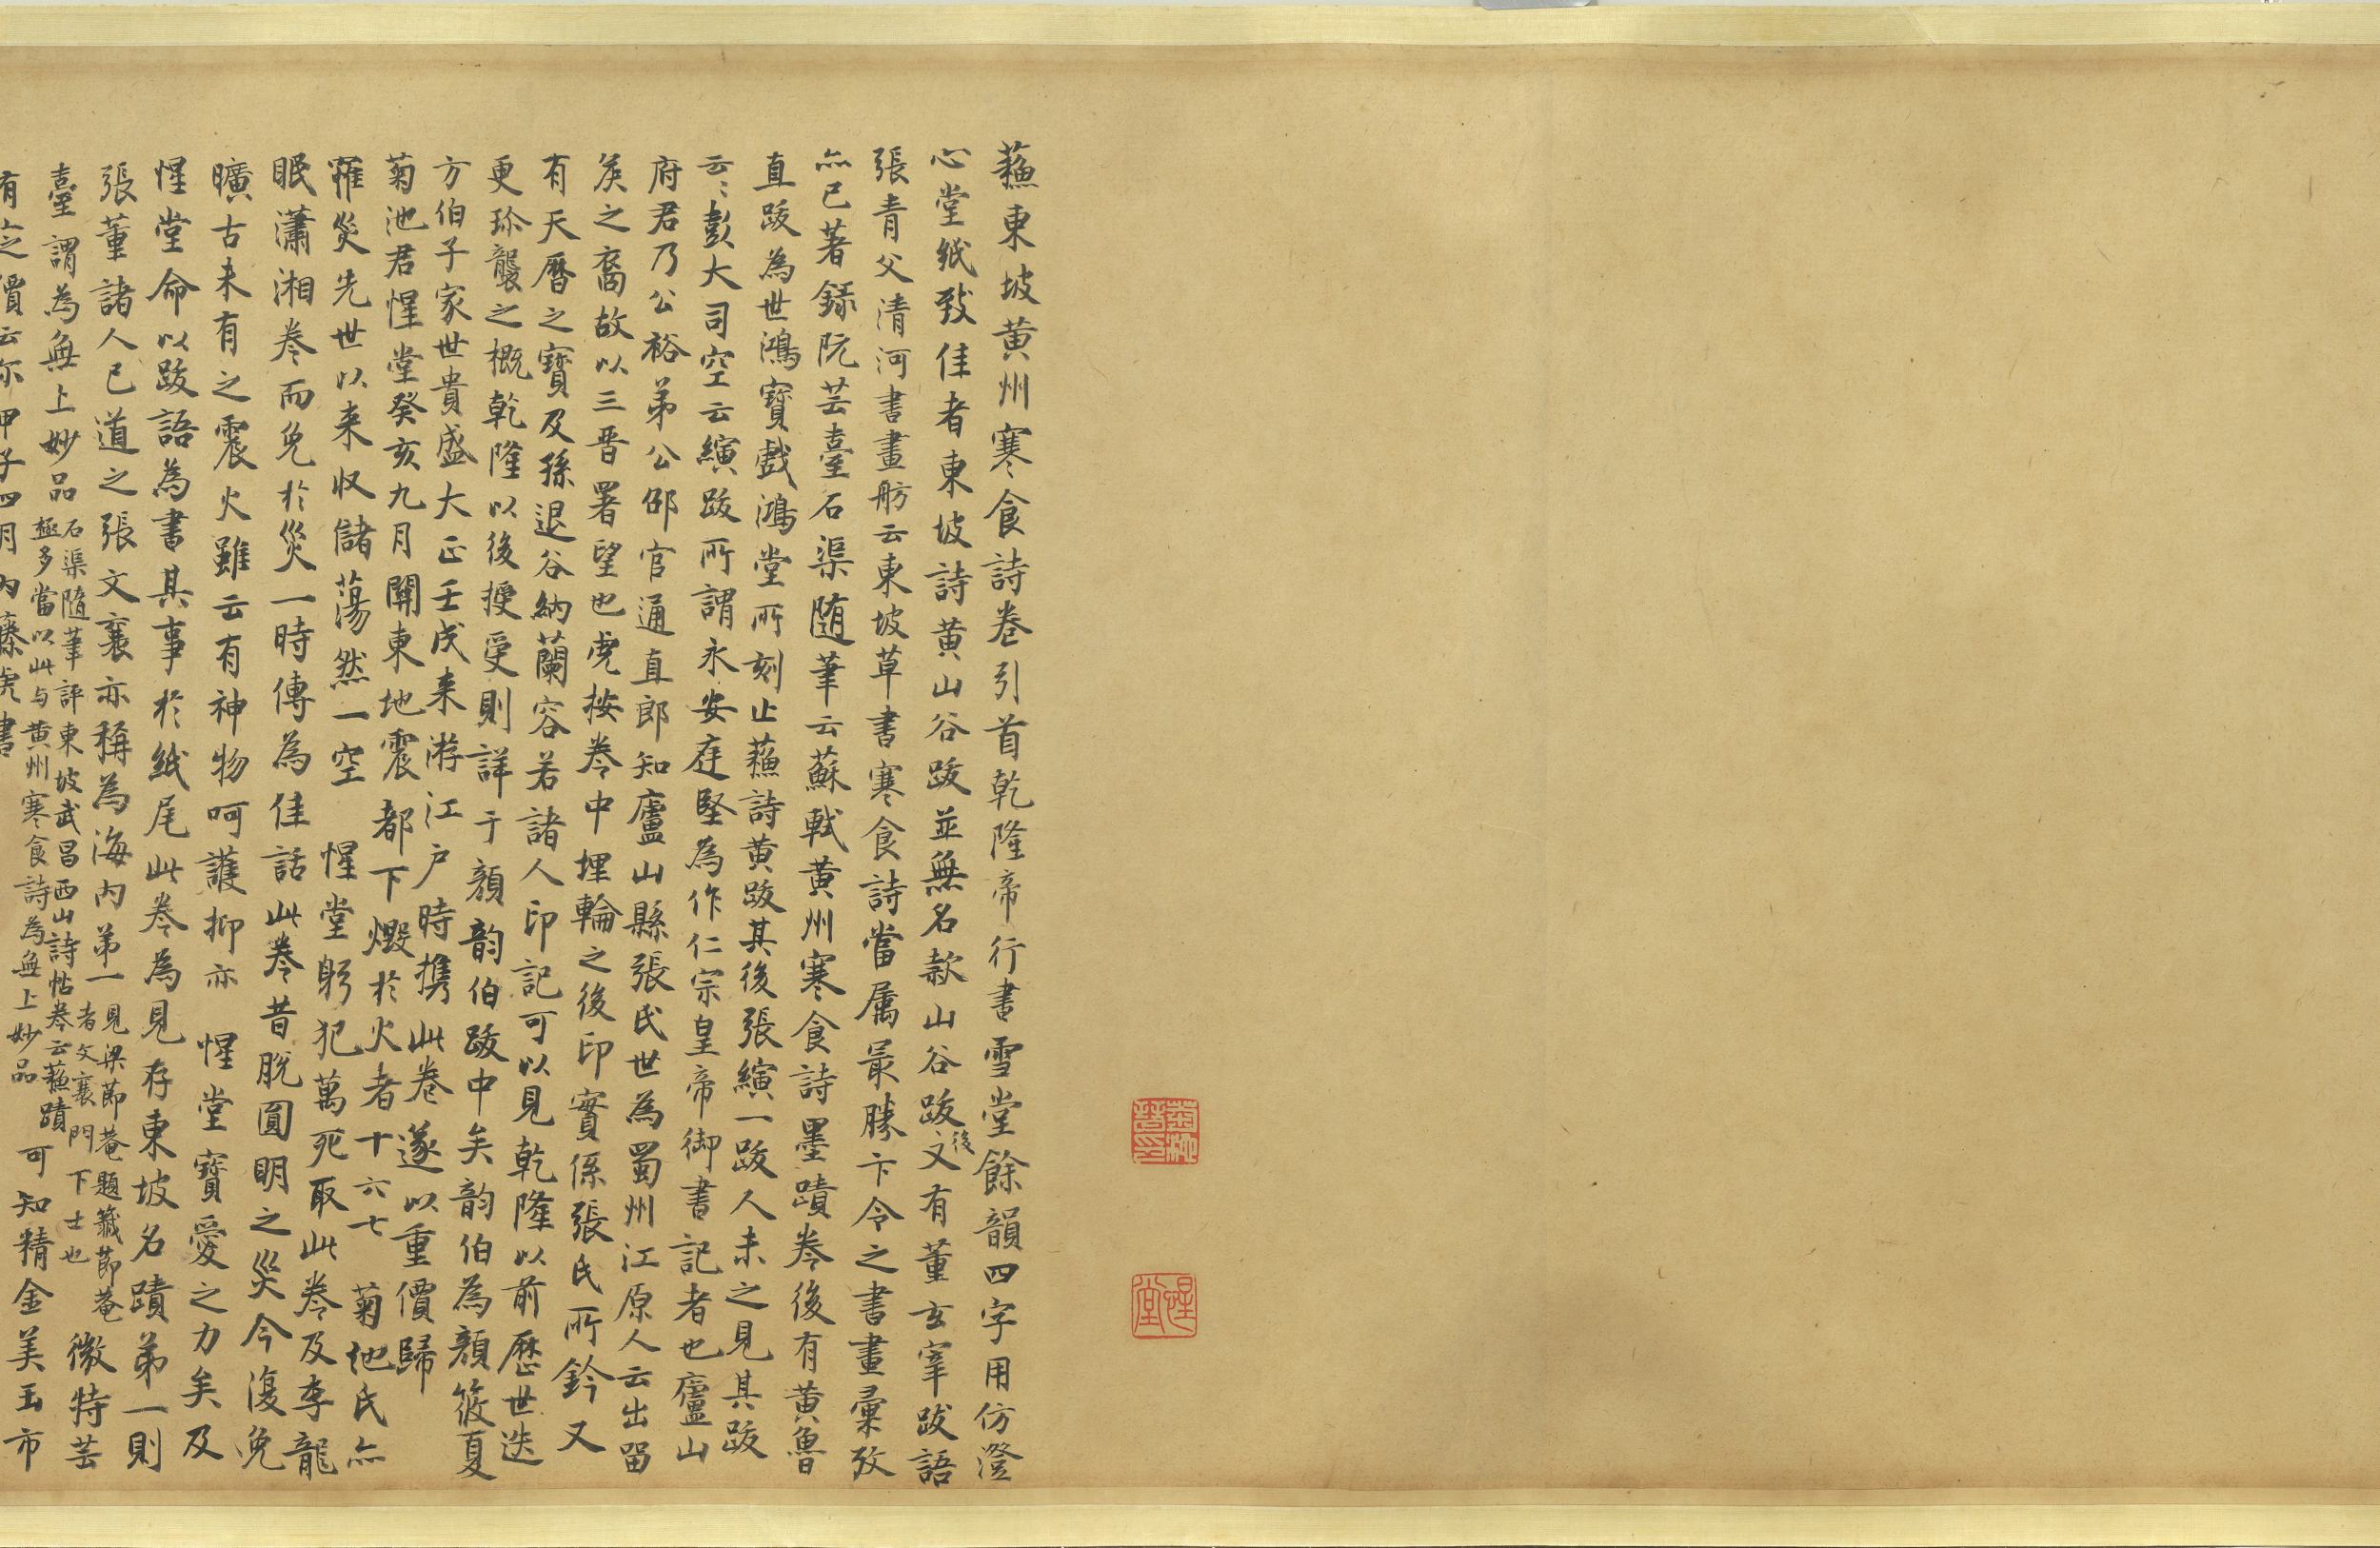 蘓東坡黃州寒食詩卷引首乾隆帝行書雪堂餘韻四字用仿澄
心堂紙致佳者東坡詩黃山谷跋並無名款山谷跋後文有董玄宰跋語
張青父清河書畫舫云東坡草書寒食詩當屬最勝卞令之書畫彙攷
亦已著錄阮芸臺石渠隨筆云蘇軾黃州寒食詩墨蹟卷後有黃魯
直跋為世鴻寶戲鴻堂所刻止蘓詩黃跋其後張縯一跋人未之見其跋
云〻彭大司空云縯跋所謂永安庭堅為作仁宗皇帝御書記者也廬山
府君乃公裕弟公邵官通直郎知廬山縣張氏世為蜀州江原人云出留
矦之裔故以三晋署望也虎按卷中埋輪之後印實係張氏所鈐又
有天曆之寶及孫退谷納蘭容若諸人印記可以見乾隆以前歷世迭
更珍襲之概乾隆以後授受則詳于顏韵伯跋中矣韵伯為顏筱夏
方伯子家世貴盛大正壬戌来游江户時携此卷遂以重價歸
菊池君惺堂癸亥九月關東地震都下燬於火者十六七　菊池氏亦
罹災先世以来収儲蕩然一空　惺堂躬犯萬死取此卷及李龍
眠瀟湘卷而免於災一時傳為佳話此卷昔脫圓明之災今復免
曠古未有之震火雖云有神物呵護抑亦　惺堂寶愛之力矣及
惺堂命以跋語為書其事於紙尾此卷為見存東坡名蹟第一則
張董諸人已道之張文襄亦稱為海内弟一見梁節菴題籤節菴者文襄門下士也微特芸
臺謂為無上妙品石渠隨筆評東坡武昌西山詩帖卷云蘓蹟極多當以此与黃州寒食詩為無上妙品可知精金美玉市
有定價云尓甲子四月内藤虎書
菊池晉印
惺堂